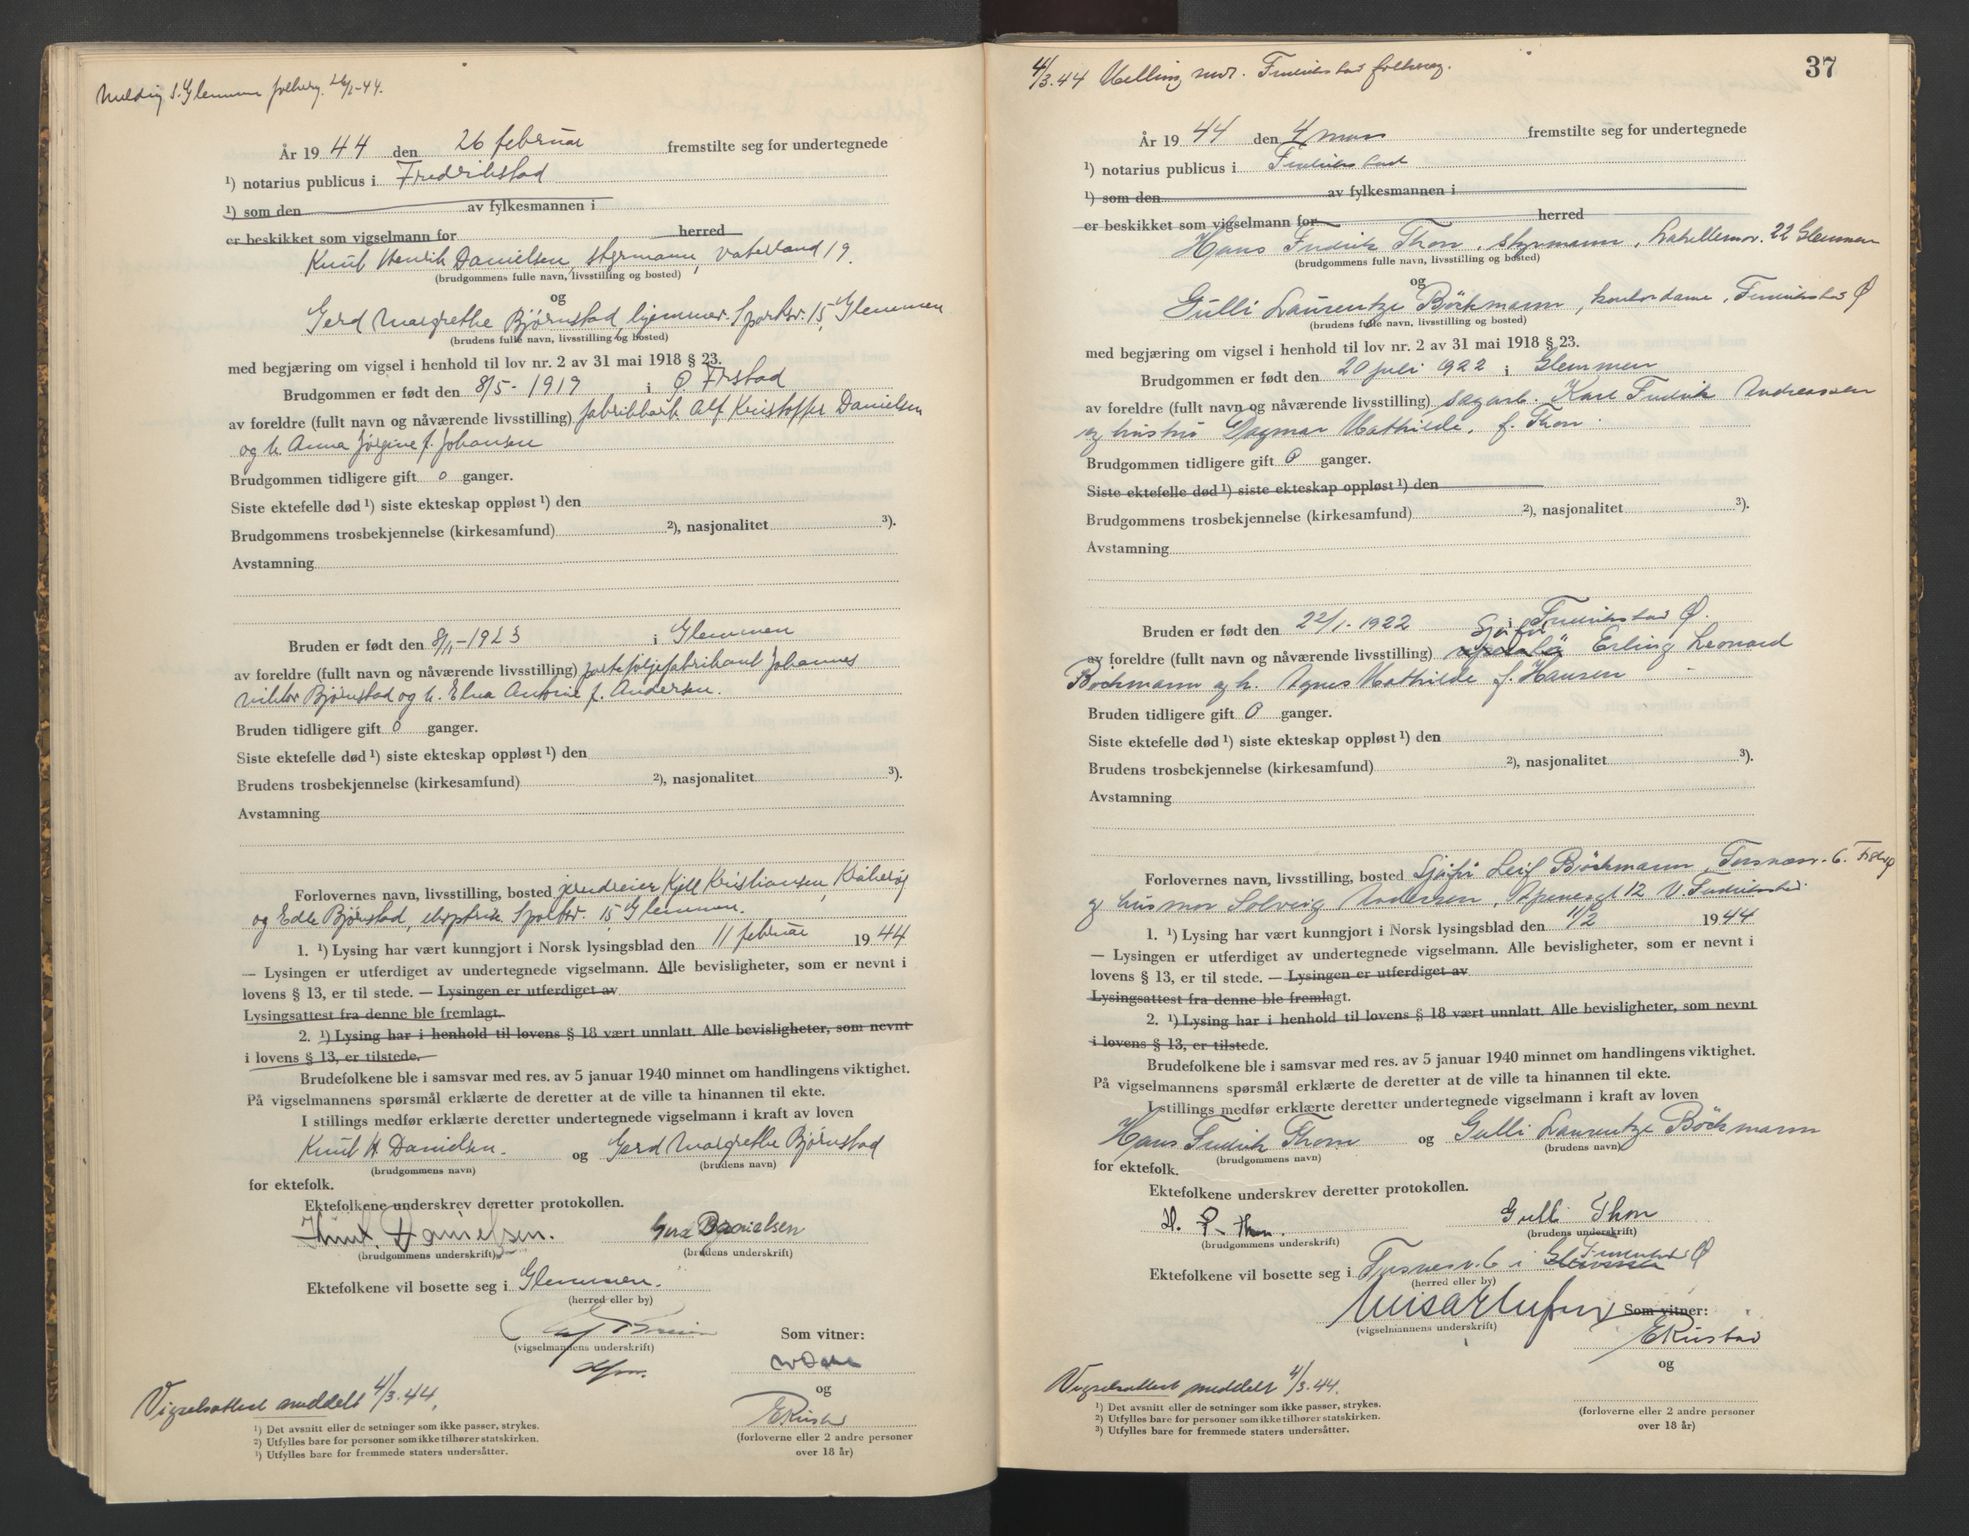 Melding s. Glemmen folkereg. 26/2-44.
År 1944 den 26 februar fremstilte seg for undertegnede
¹) notarius publicus i Fredrikstad
¹) som den av fylkesmannen i
er beskikket som vigselmann for herred
Knut Henrik Danielsen, styrmann, Vaterland 19.
(brudgommens fulle navn, livsstilling og bosted)
og
Gerd Margrethe Bjørnstad, hjemmev. Sportsv. 15, Glemmen
(brudens fulle navn, livsstilling og bosted)
med begjæring om vigsel i henhold til lov nr. 2 av 31 mai 1918 § 23.
Brudgommen er født den 8/5-1919 i Ø. Frstad
av foreldre (fullt navn og nåværende livsstilling) fabrikkarb. Alf Kristoffer Danielsen
og h. Anna Jørgine f. Johansen
Brudgommen tidligere gift 0 ganger.
Siste ektefelle død¹) siste ekteskap oppløst¹) den
Brudgommens trosbekjennelse (kirkesamfund) ²), nasjonalitet ³).
Avstamning
Bruden er født den 8/1-1923 i Glemmen
av foreldre (fullt navn og nåværende livsstilling) porteføljefabrikant Johannes
Viktor Bjørnstad og h. Elna Antonie f. Andersen.
Bruden tidligere gift 0 ganger.
Siste ektefelle død¹) siste ekteskap oppløst¹) den
Brudens trosbekjennelse (kirkesamfund) ²), nasjonalitet ³).
Avstamning
Forlovernes navn, livsstilling, bosted jerndreier Kjell Kristiansen, Kråkerøy
og Edle Bjørnstad, Sportsv. 15, Glemmen.
1. ¹) Lysing har vært kunngjort i Norsk lysingsblad den 11 februar 1944
— Lysingen er utferdiget av undertegnede vigselmann. Alle bevisligheter, som er nevnt i
lovens § 13, er til stede. — Lysingen er utferdiget av
Lysingsattest fra denne ble fremlagt.
2. ¹) Lysing har i henhold til lovens § 18 vært unnlatt. Alle bevisligheter, som nevnt
i lovens § 13, er tilstede.
Brudefolkene ble i samsvar med res. av 5 januar 1940 minnet om handlingens viktighet.
På vigselmannens spørsmål erklærte de deretter at de ville ta hinannen til ekte.
I stillings medfør erklærte deretter undertegnede vigselmann i kraft av loven
Knut H. Danielsen. og Gerd Margrethe Bjørnstad
(brudgommens navn) (brudens navn)
for ektefolk.
Ektefolkene underskrev deretter protokollen.
Knut. Danielsen. Gerd Danielsen
(brudgommens underskrift) (brudens underskrift)
Ektefolkene vil bosette seg i Glemmen.
(herred eller by)
Som vitner:
(vigselmannens underskrift)
og
Vigselsattest meddelt 4/3.44.
EKristad
¹) Det avsnitt eller de setninger som ikke passer, strykes.
²) Utfylles bare for personer som ikke tilhører statskirken.
³) Utfylles bare for fremmede staters undersåtter.
(forloverne eller 2 andre personer
over 18 år)
4/3.44 Melling mdr. Fredrikstad folkereg.
37
År 1944 den 4 mars fremstilte seg for undertegnede
¹) notarius publicus i Fredrikstad
¹) som den av fylkesmannen i
er beskikket som vigselmann for herred
Hans Fredrik Thon, styrmann, 22 Glemmen
(brudgommens fulle navn, livsstilling og bosted)
og
Gulli Laurentze Böckmann, kontordame, Fredrikstad Ø
(brudens fulle navn, livsstilling og bosted)
med begjæring om vigsel i henhold til lov nr. 2 av 31 mai 1918 § 23.
Brudgommen er født den 20 juli 1922 i Glemmen
av foreldre (fullt navn og nåværende livsstilling) sagarb. Karl Fredrik Andreassen
og hustru Dagmar Mathilde, f. Thon.
Brudgommen tidligere gift 0 ganger.
Siste ektefelle død¹) siste ekteskap oppløst¹) den
Brudgommens trosbekjennelse (kirkesamfund) ²), nasjonalitet ³).
Avstamning
Bruden er født den 22/1-1922 i Fredrikstad Ø.
av foreldre (fullt navn og nåværende livsstilling) Sjåfør Erling Leonard
Böckmann og h. Agnes Mathilde f. Hansen
Bruden tidligere gift 0 ganger.
Siste ektefelle død¹) siste ekteskap oppløst¹) den
Brudens trosbekjennelse (kirkesamfund) ²), nasjonalitet ³).
Avstamning
Forlovernes navn, livsstilling, bosted Sjåfør Leif Böckmann, Torsnesv. 6.
og husmor Solveig Andersen, 12 V. Fredrikstad.
1. ¹) Lysing har vært kunngjort i Norsk lysingsblad den 11/2 1944
— Lysingen er utferdiget av undertegnede vigselmann. Alle bevisligheter, som er nevnt i
lovens § 13, er til stede. — Lysingen er utferdiget av
Lysingsattest fra denne ble fremlagt.
2. ¹) Lysing har i henhold til lovens § 18 vært unnlatt. Alle bevisligheter, som nevnt
i lovens § 13, er tilstede.
Brudefolkene ble i samsvar med res. av 5 januar 1940 minnet om handlingens viktighet.
På vigselmannens spørsmål erklærte de deretter at de ville ta hinannen til ekte.
I stillings medfør erklærte deretter undertegnede vigselmann i kraft av loven
Hans Fredrik Thon og Gulli Laurentze Böckmann
(brudgommens navn) (brudens navn)
for ektefolk.
Ektefolkene underskrev deretter protokollen.
H. F. Thon. Gulli Thon
(brudgommens underskrift) (brudens underskrift)
Ektefolkene vil bosette seg i Torsnesv. 6 i Glemmen Fredrikstad Ø
(herred eller by)
Som vitner:
(vigselmannens underskrift)
EKristad
og
Vigselsattest meddelt 4/3.44.
¹) Det avsnitt eller de setninger som ikke passer, strykes.
²) Utfylles bare for personer som ikke tilhører statskirken.
³) Utfylles bare for fremmede staters undersåtter.
(forloverne eller 2 andre personer
over 18 år)